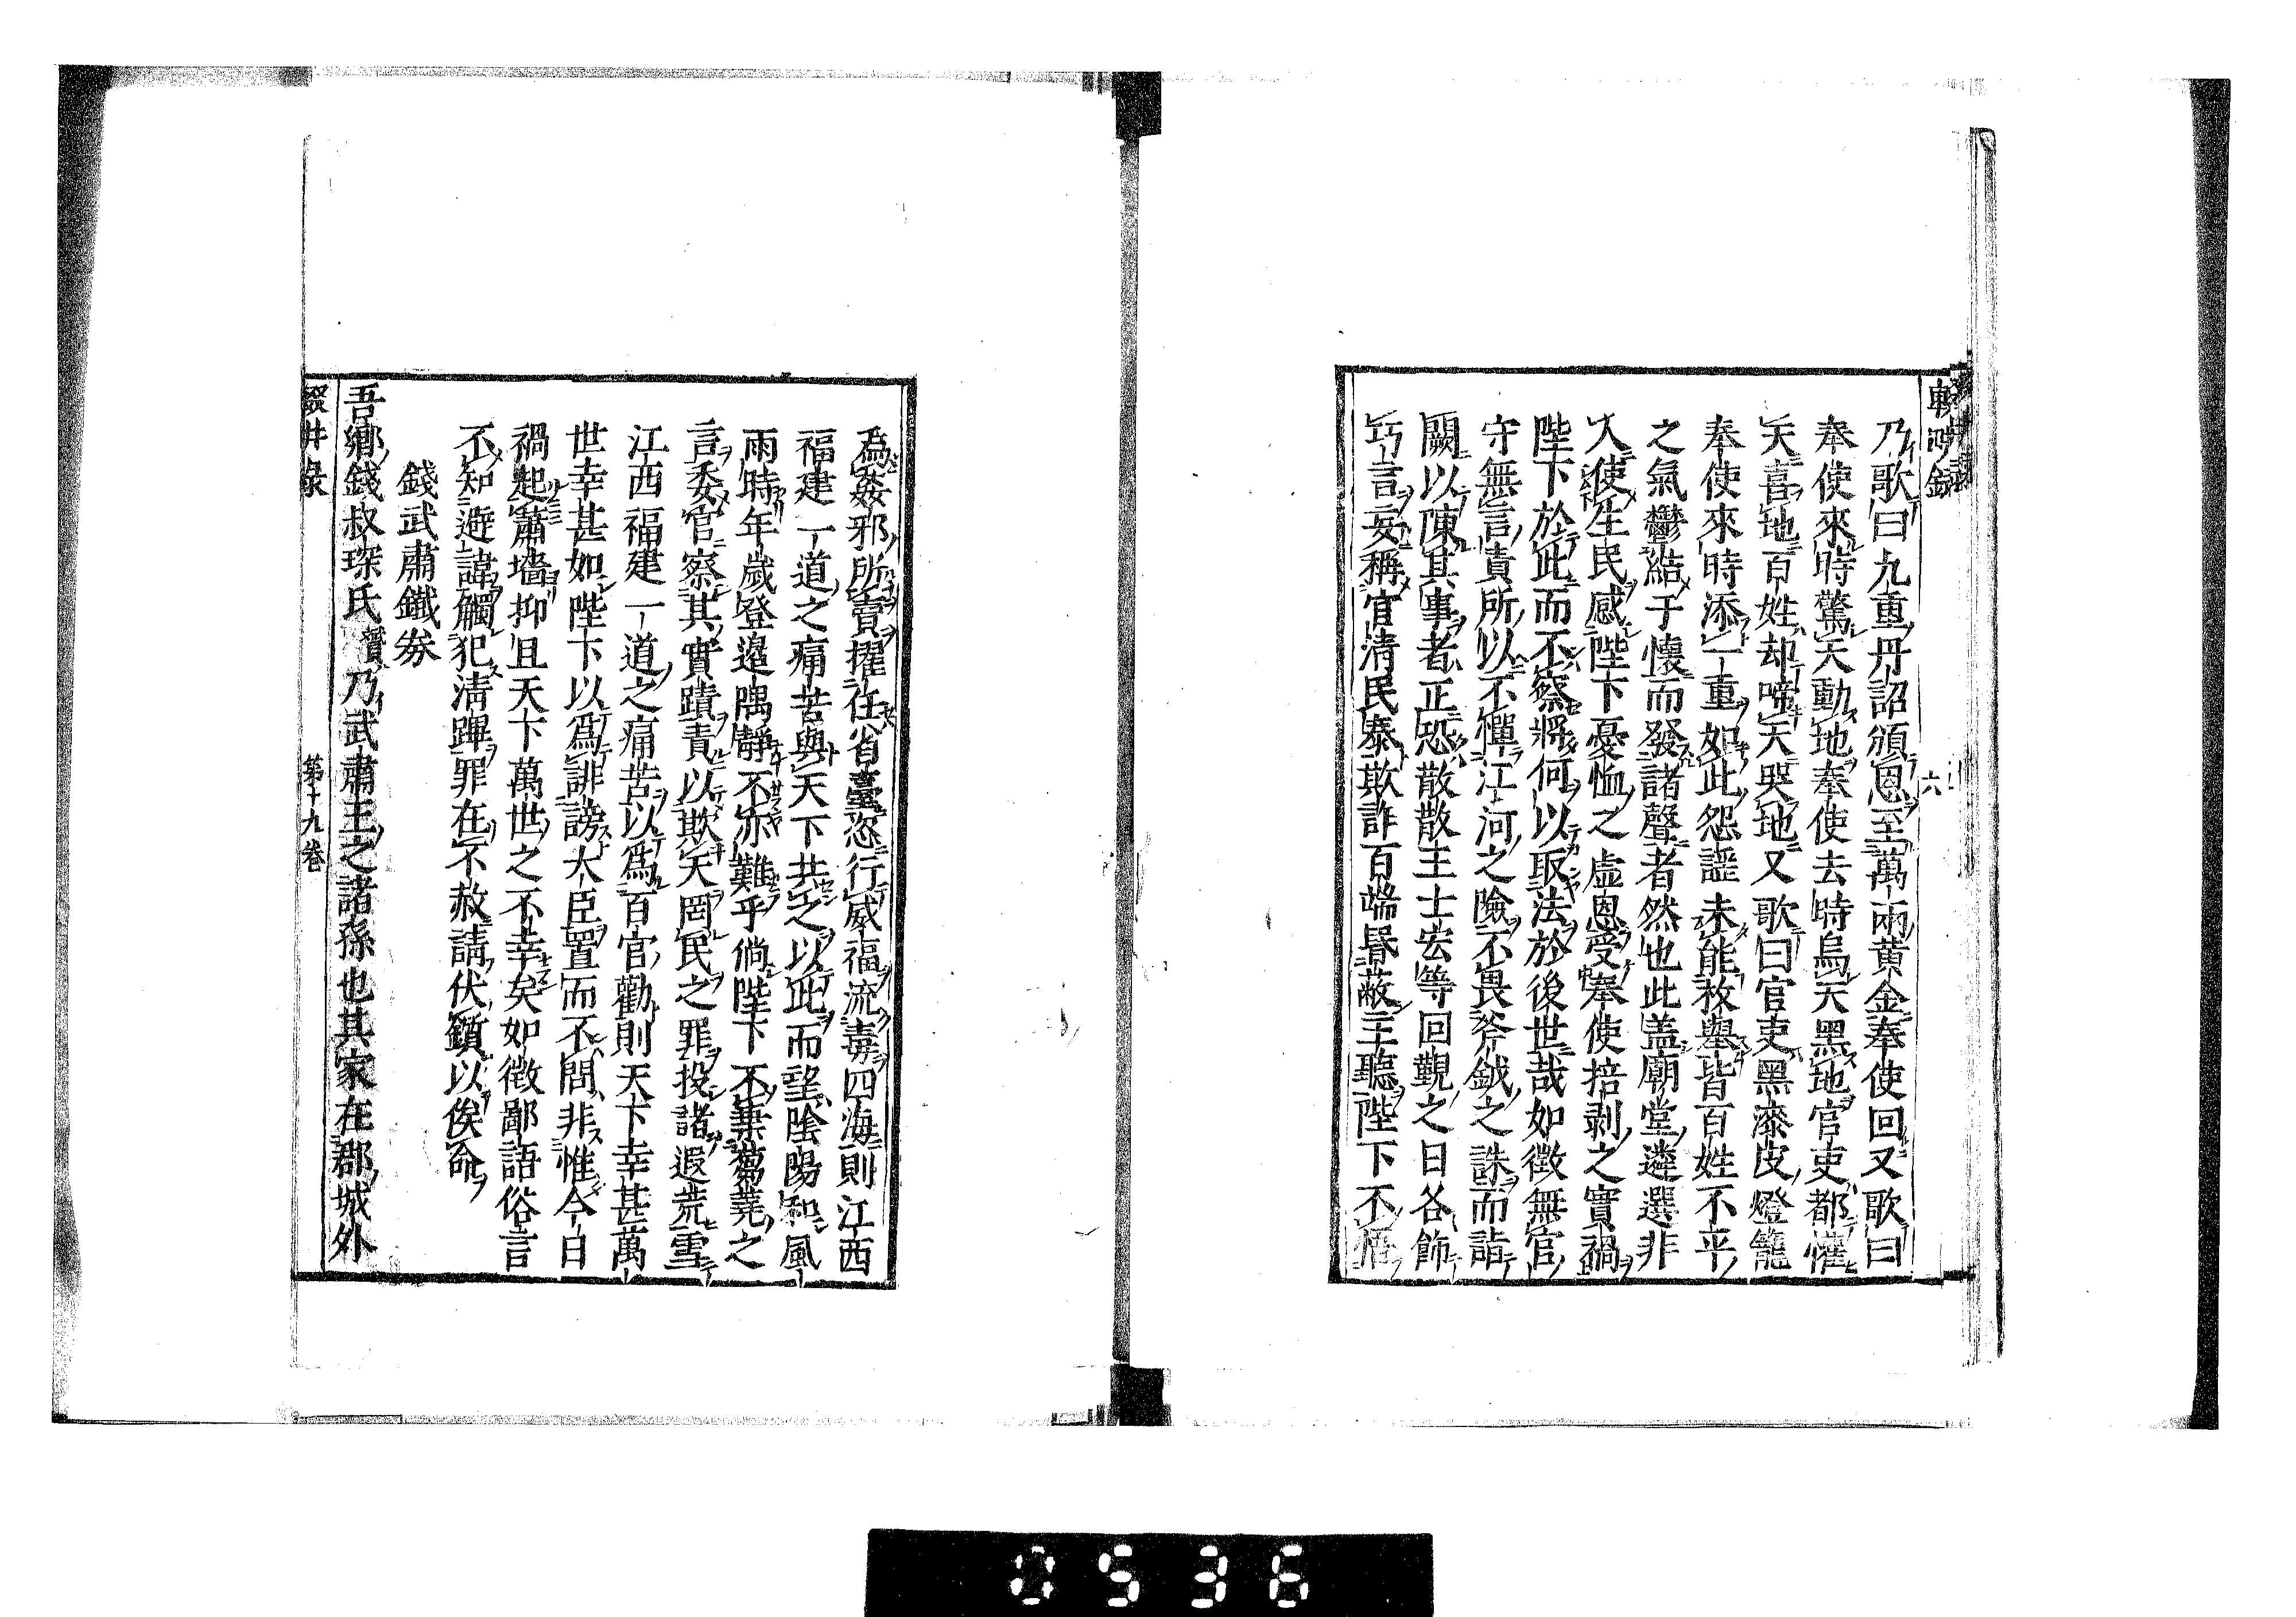 輟畊錄
六
乃歌曰九重丹詔頒恩至萬兩黃金奉使回又歌曰
奉使來時驚天動地奉使去時烏天黑地官吏都懽
天喜地百姓却啼天哭地又歌曰官吏黑漆皮燈籠
奉使來時添一重如此怨謡未能枚舉皆百姓不平
之氣鬱結于懷而發諸聲者然也此盖廟堂遴選非
人使生民感陛下憂恤之虚恩受奉使掊剥之實禍
陛下於此而不察將何以取法於後世哉如徵無官
守無言責所以不憚江河之險不畏斧鉞之誅而詣
闕以陳其事者正恐散散王士宏等回覲之日各飾
巧言妄稱官淸民泰欺詐百端昬蔽主聽陛下不悟
為姦邪所賣擢任省臺恣行威福流毒四海則江西
福建一道之痛苦與天下共之以此而望陰陽和風
雨時年歲登邉隅靜不亦難乎倘陛下不棄蒭蕘之
言委官察其實蹟責以欺天罔民之罪投諸遐荒雪
江西福建一道之痛苦以爲百官勸則天下幸甚萬
世幸甚如陛下以爲誹謗大臣置而不問非惟今日
禍起蕭墻抑且天下萬世之不幸矣如徴鄙語俗言
不知避諱觸犯淸蹕罪在不赦請伏鑕以俟命
錢武肅鐵劵
吾鄉錢叔琛氏贇乃武肅王之諸孫也其家在郡城外
輟畊錄
第十九巻
0536